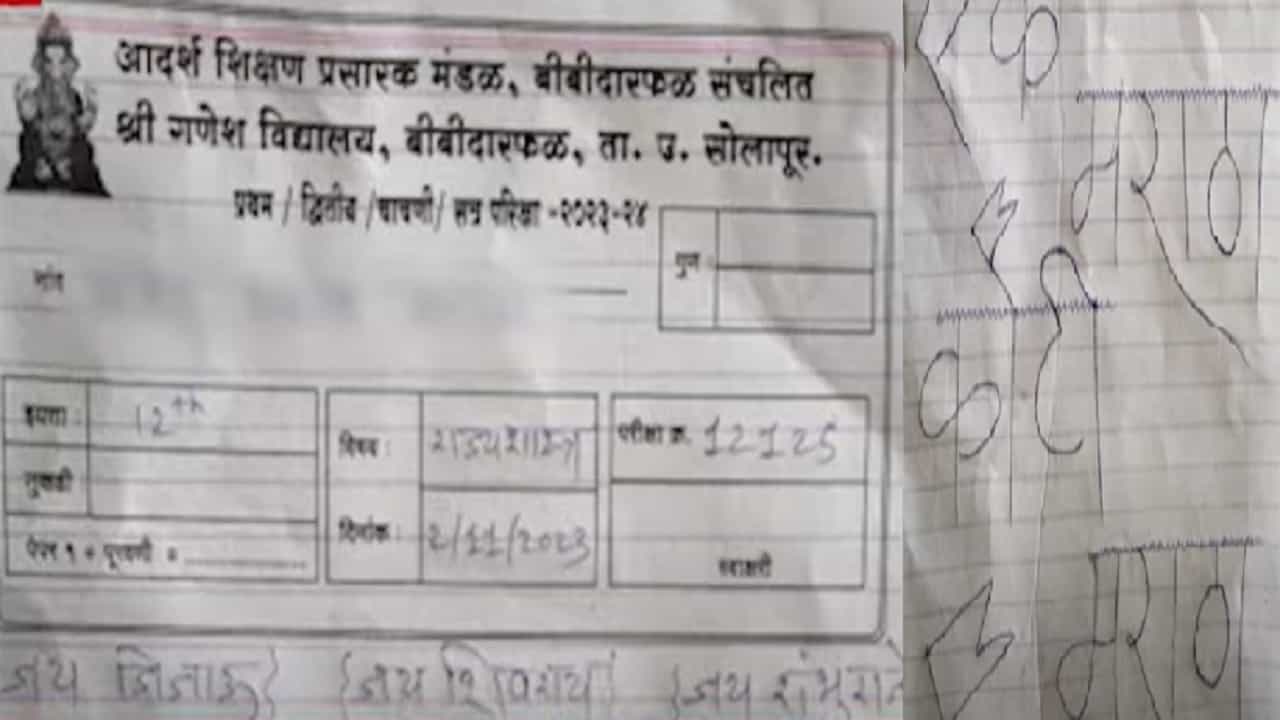 आदर्श शिक्षण प्रसारक मंडळ, बीबीदारफळ संचलित
श्री गणेश विद्यालय, बीबीदारफळ, ता. उ. सोलापूर.
प्रथम / द्वितीय /चाचणी/ सत्र परिक्षा -२०२३-२४
नांव
गुण
इयत्ता : 12th
तुकडी
पेपर १ + पुरवणी =
विषय : राज्यशास्त्र
दिनांक : 2/11/2023
परीक्षा क्र. 12125
स्वाक्षरी
जय जिजाऊ जय शिवराय जय शंभुराजे
एक
मराठा
कोटी
मराठा